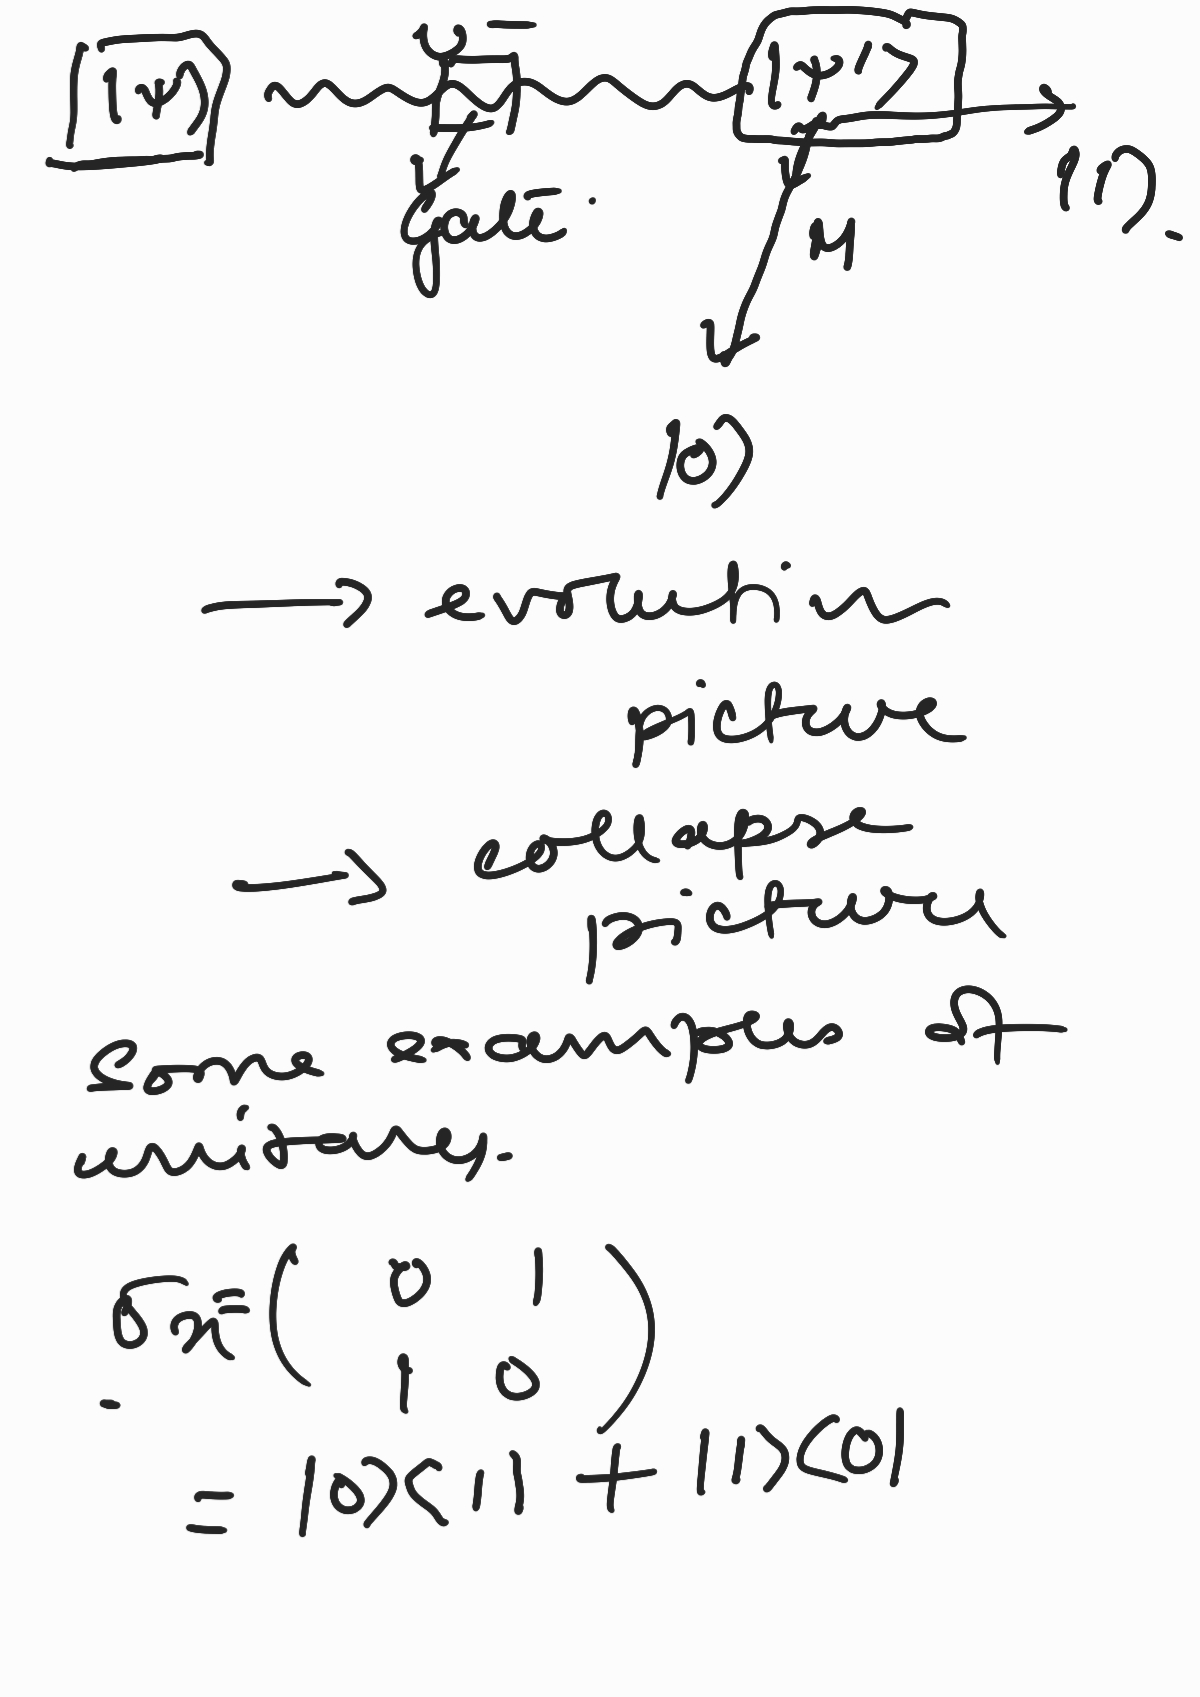 U
|ψ⟩ |ψ'⟩
|1⟩.
gate.
M
|0⟩
→ evolution
picture
→ collapse
picture
Some examples of
unitary.
σx = ( 0 1
1 0 )
= |0⟩⟨1| + |1⟩⟨0|